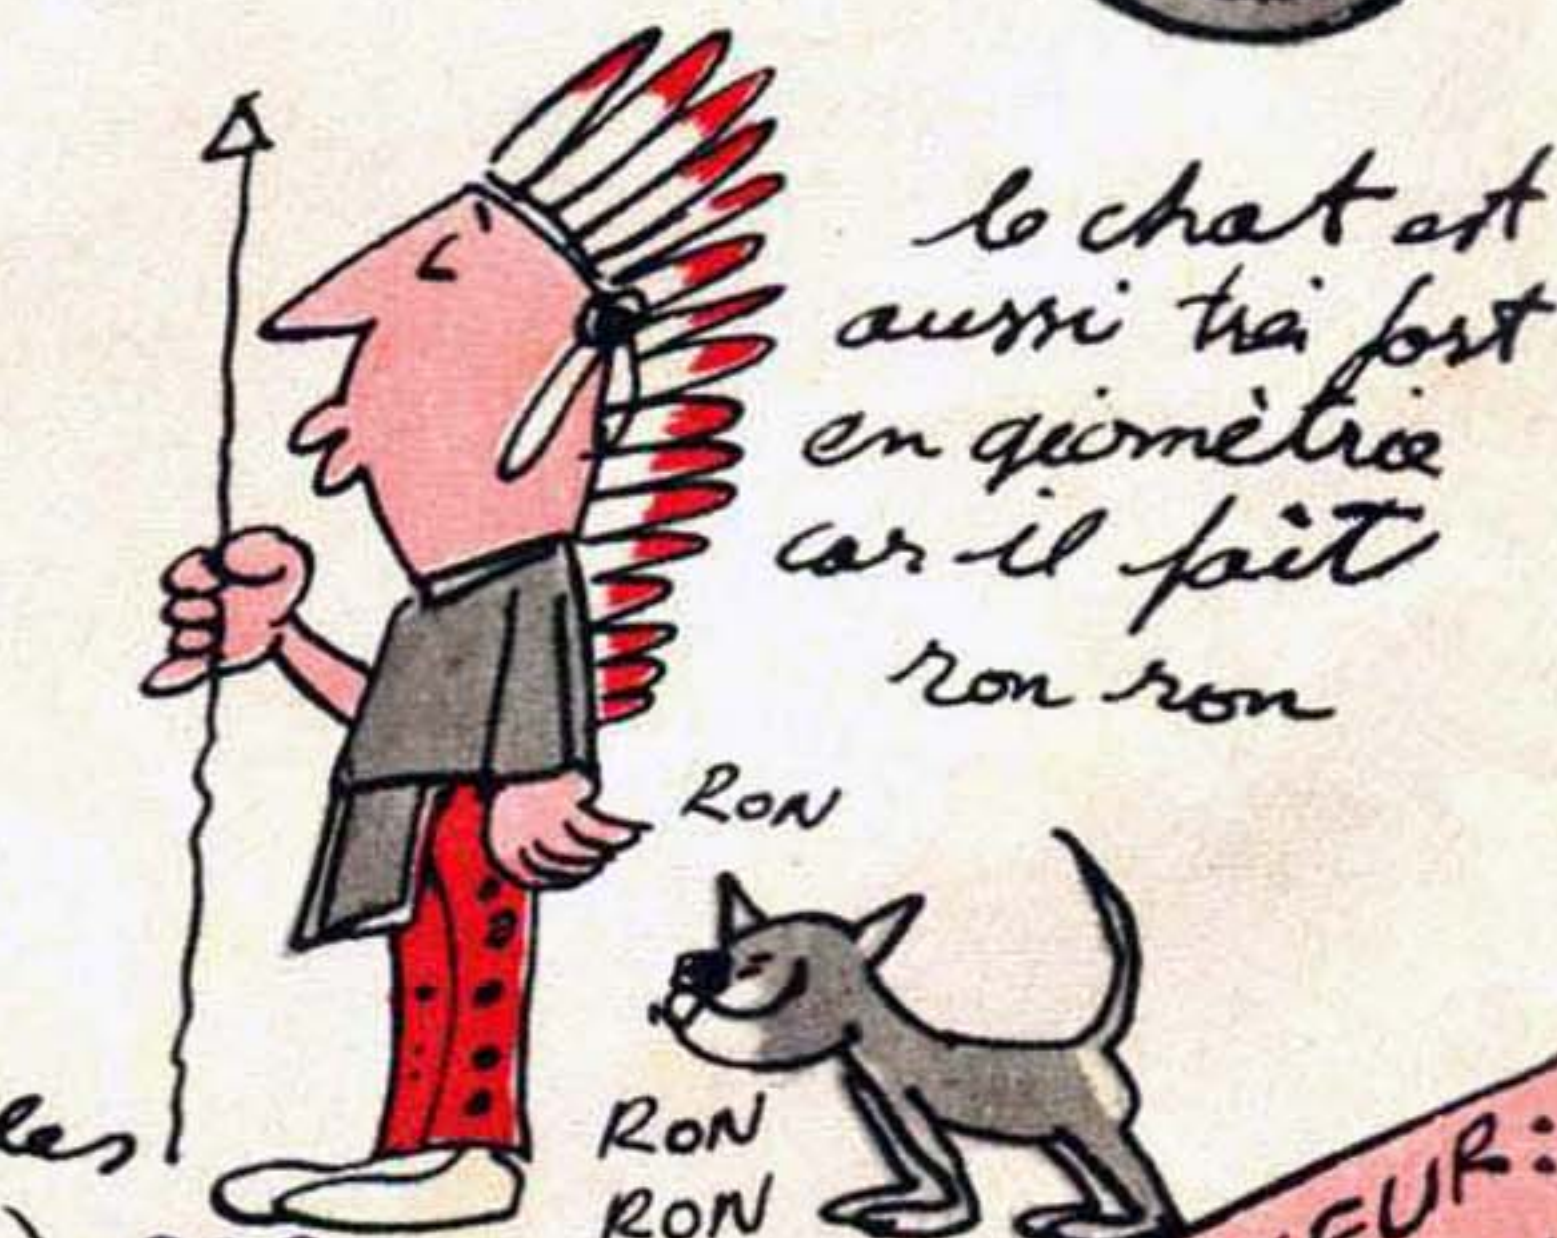 le chat est
aussi très fort
en géomètrie
car il fait
ron ron
RON
RON
RON
les
EUR: